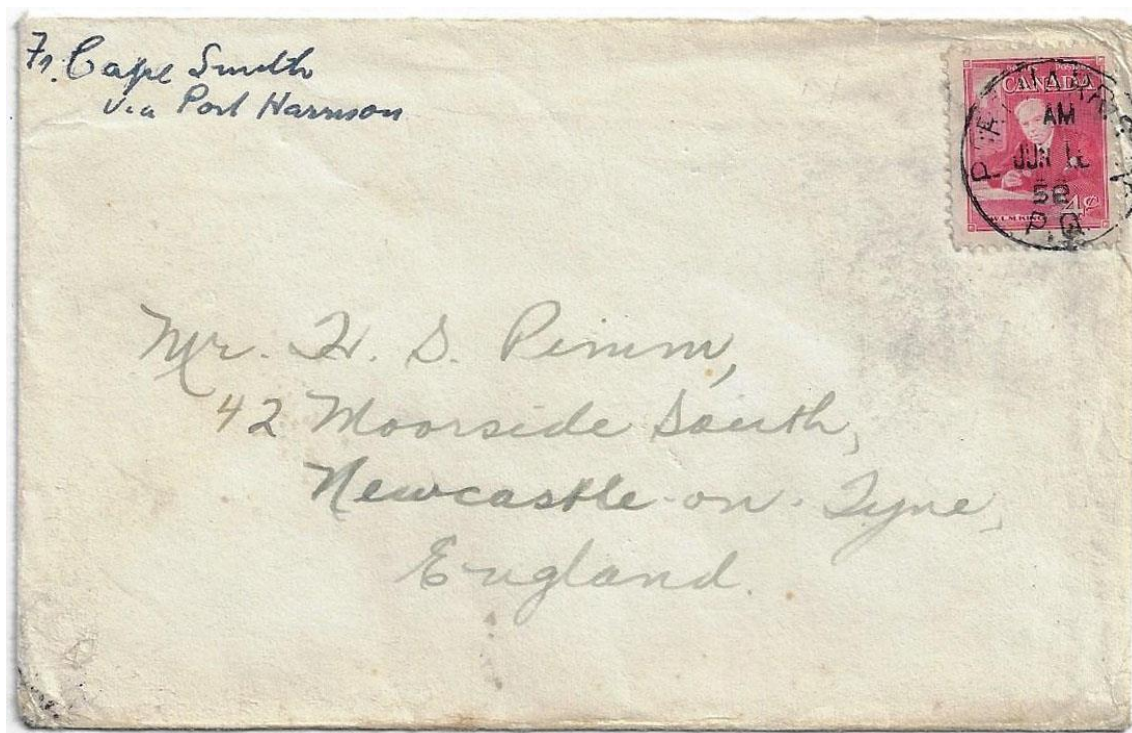 Fr. Cape Smith
via Port Harrison
POSTES
CANADA
AM
JUN
4¢
P.Q.
Mr. H. S. Pimm,
42 Moorside South,
Newcastle-on-Tyne,
England.